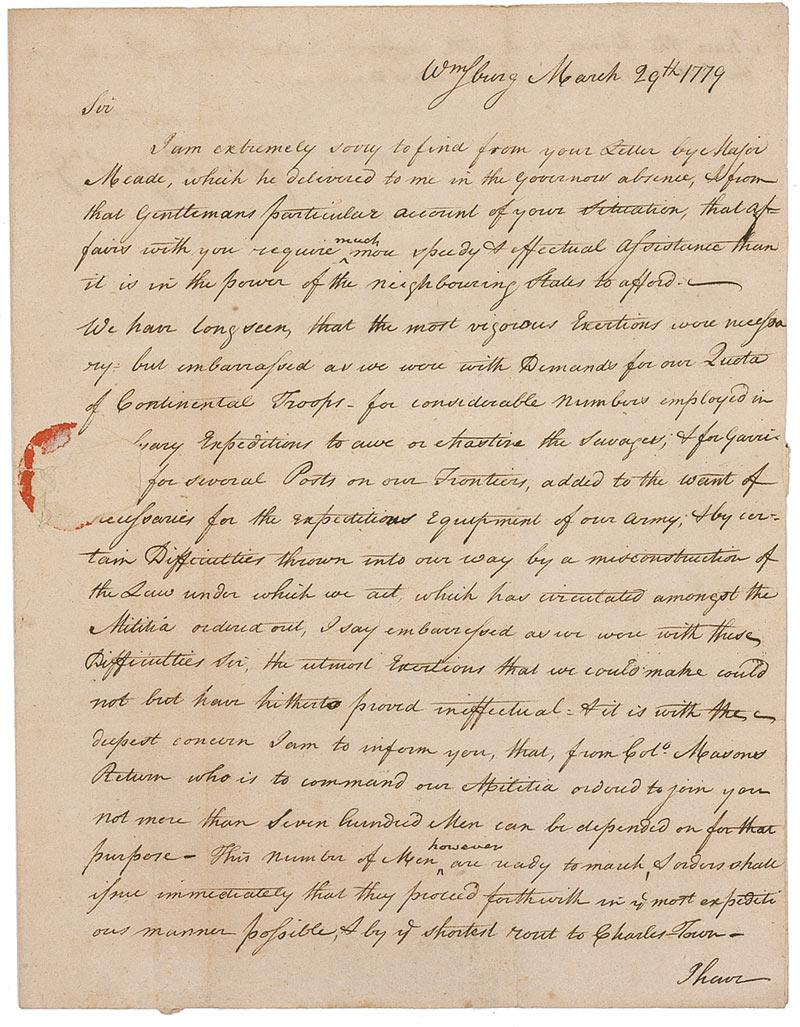 Wmsburg March 29th 1779
Sir
I am extremely sorry to find from your Letter by Major
Meade, which he delivered to me in the Governors absence, & from
that Gentlemans particular account of your situation, that af-
much
fairs with you require ^ more speedy & effectual Assistance than
it is in the power of the neighbouring States to afford.
We have long seen, that the most vigorous Exertions were necessa
ry- but embarrassed as we were with Demands for our Quota
of Continental Troops - for considerable Numbers employed in
Expeditions to awe or chastise the Savages; & for Garri-
for several Posts on our Frontiers, added to the want of
ecessaries for the expeditious Equipment of our Army; & by cer-
tain Difficulties thrown into our way by a misconstruction of
the Law under which we act, which has circulated amongst the
Militia ordered out, I say embarrassed as we were with these
Difficulties Sir, the utmost Exertions that we could make could
not but have hitherto proved ineffectual - & it is with the
deepest concern I am to inform you, that, from Colo. Masons
Return who is to command our Militia ordered to join you
not more than Seven hundred Men can be depended on for that
however
purpose - This number of Men ^ are ready to march, & orders shall
issue immediately that they proceed forthwith in ye most expediti
ous manner possible, & by ye shortest rout to Charles-Town -
I have